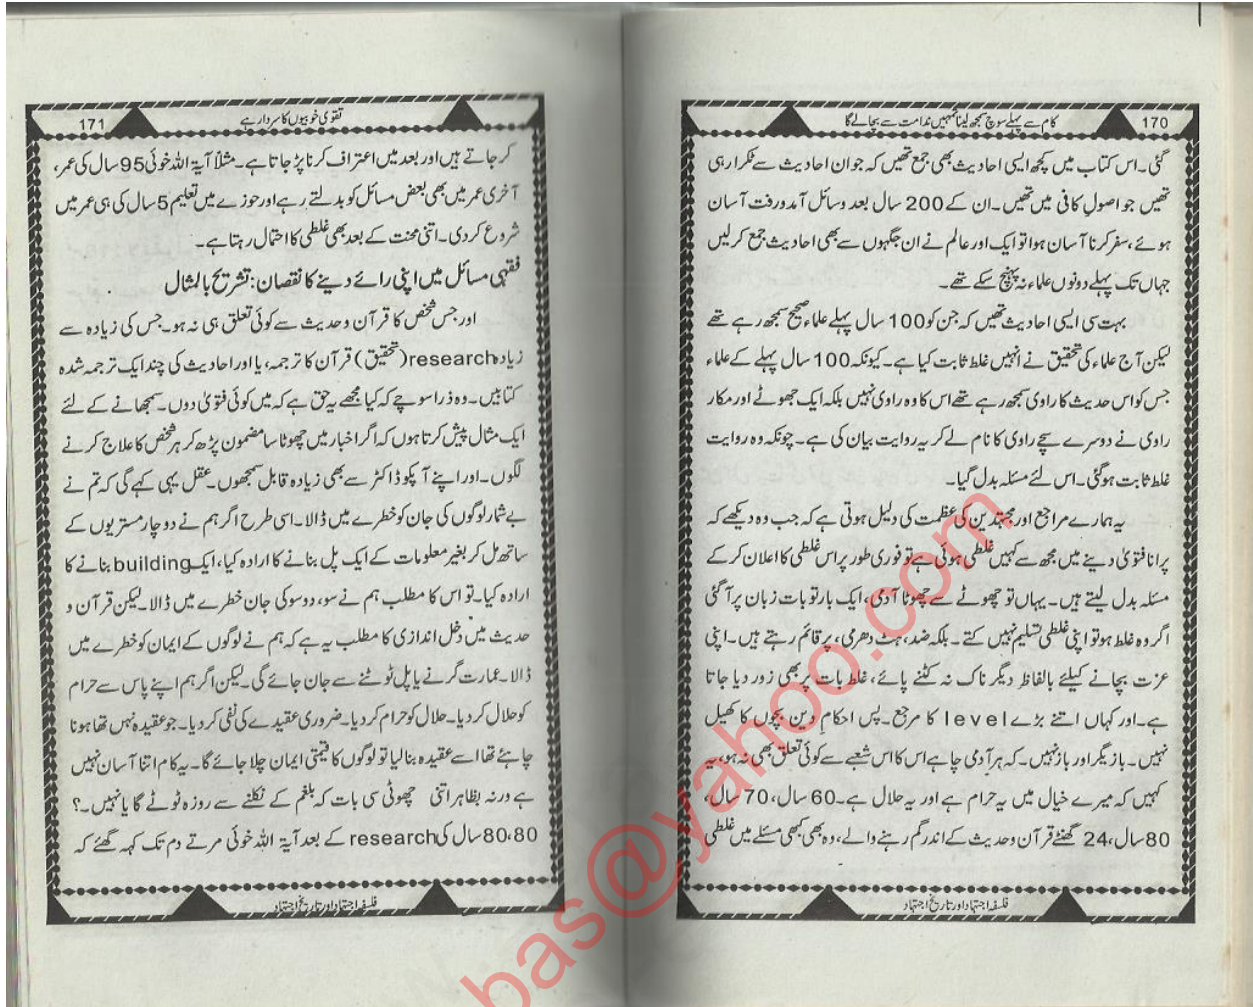 170
کام سے پہلے سوچ سمجھ لینا تمہیں ندامت سے بچالے گا
گئی۔ اس کتاب میں کچھ ایسی احادیث بھی جمع تھیں کہ جو ان احادیث سے ٹکرا رہی
تھیں جو اصولِ کافی میں تھیں۔ ان کے 200 سال بعد وسائل آمدورفت آسان
ہوئے، سفر کرنا آسان ہوا تو ایک اور عالم نے ان جگہوں سے بھی احادیث جمع کرلیں
جہاں تک پہلے دونوں علماء نہ پہنچ سکے تھے۔
بہت سی ایسی احادیث تھیں کہ جن کو 100 سال پہلے علماء صحیح سمجھ رہے تھے
لیکن آج علماء کی تحقیق نے انہیں غلط ثابت کیا ہے۔ کیونکہ 100 سال پہلے کے علماء
جس کو اس حدیث کا راوی سمجھ رہے تھے اس کا وہ راوی نہیں بلکہ ایک جھوٹے اور مکار
راوی نے دوسرے سچے راوی کا نام لے کر یہ روایت بیان کی ہے۔ چونکہ وہ روایت
غلط ثابت ہوگئی۔ اس لئے مسئلہ بدل گیا۔
یہ ہمارے مراجع اور مجتہدین کی عظمت کی دلیل ہوتی ہے کہ جب وہ دیکھے کہ
پرانا فتویٰ دینے میں مجھ سے کہیں غلطی ہوئی ہے تو فوری طور پر اس غلطی کا اعلان کرکے
مسئلہ بدل لیتے ہیں۔ یہاں تو چھوٹے سے چھوٹا آدمی، ایک بار تو بات زبان پر آگئی
اگر وہ غلط ہو تو اپنی غلطی تسلیم نہیں کتے۔ بلکہ ضد، ہٹ دھرمی، پر قائم رہتے ہیں۔ اپنی
عزت بچانے کیلئے بالفاظِ دیگر ناک نہ کٹنے پائے، غلط بات پر بھی زور دیا جاتا
ہے۔ اور کہاں اتنے بڑے level کا مرجع۔ پس احکامِ دین بچوں کا کھیل
نہیں۔ بازیگر اور باز نہیں۔ کہ ہر آدمی چاہے اس کا اس شعبے سے کوئی تعلق بھی نہ ہو، یہ
کہیں کہ میرے خیال میں یہ حرام ہے اور یہ حلال ہے۔ 60 سال، 70 سال،
80 سال، 24 گھنٹے قرآن و حدیث کے اندر گم رہنے والے، وہ بھی کبھی مسئلے میں غلطی
فلسفہ اجتہاد اور تاریخ اجتہاد
تقویٰ خوبیوں کا سردار ہے
171
کر جاتے ہیں اور بعد میں اعتراف کرنا پڑ جاتا ہے۔ مثلاً آیۃ اللہ خوئی 95 سال کی عمر،
آخری عمر میں بھی بعض مسائل کو بدلتے رہے اور حوزے میں تعلیم 5 سال کی ہی عمر میں
شروع کردی۔ اتنی محنت کے بعد بھی غلطی کا احتمال رہتا ہے۔
فقہی مسائل میں اپنی رائے دینے کا نقصان: تشریح بالمثال
اور جس شخص کا قرآن و حدیث سے کوئی تعلق ہی نہ ہو۔ جس کی زیادہ سے
زیادہ research (تحقیق) قرآن کا ترجمہ، یا اور احادیث کی چند ایک ترجمہ شدہ
کتابیں۔ وہ ذرا سوچے کہ کیا مجھے یہ حق ہے کہ میں کوئی فتویٰ دوں۔ سمجھانے کے لئے
ایک مثال پیش کرتا ہوں کہ اگر اخبار میں چھوٹا سا مضمون پڑھ کر ہر شخص کا علاج کرنے
لگوں۔ اور اپنے آپکو ڈاکٹر سے بھی زیادہ قابل سمجھوں۔ عقل یہی کہے گی کہ تم نے
بے شمار لوگوں کی جان کو خطرے میں ڈالا۔ اسی طرح اگر ہم نے دو چار مستریوں کے
ساتھ مل کر بغیر معلومات کے ایک پل بنانے کا ارادہ کیا، ایک building بنانے کا
ارادہ کیا۔ تو اس کا مطلب ہم نے سو، دوسو کی جان خطرے میں ڈالا لیکن قرآن و
حدیث میں دخل اندازی کا مطلب یہ ہے کہ ہم نے لوگوں کے ایمان کو خطرے میں
ڈالا۔ عمارت گرنے یا پل ٹوٹنے سے جان جائے گی۔ لیکن اگر ہم اپنے پاس سے حرام
کو حلال کردیا۔ حلال کو حرام کردیا۔ ضروری عقیدے کی نفی کردیا۔ جو عقیدہ نہیں تھا ہونا
چاہئے تھا اسے عقیدہ بنالیا تو لوگوں کا قیمتی ایمان چلا جائے گا۔ یہ کام اتنا آسان نہیں
ہے ورنہ بظاہر اتنی چھوٹی سی بات کہ بلغم کے نکلنے سے روزہ ٹوٹے گا یا نہیں۔؟
80،80 سال کی research کے بعد آیۃ اللہ خوئی مرتے دم تک کہہ گئے کہ
فلسفہ اجتہاد اور تاریخ اجتہاد
bas@yahoo.com